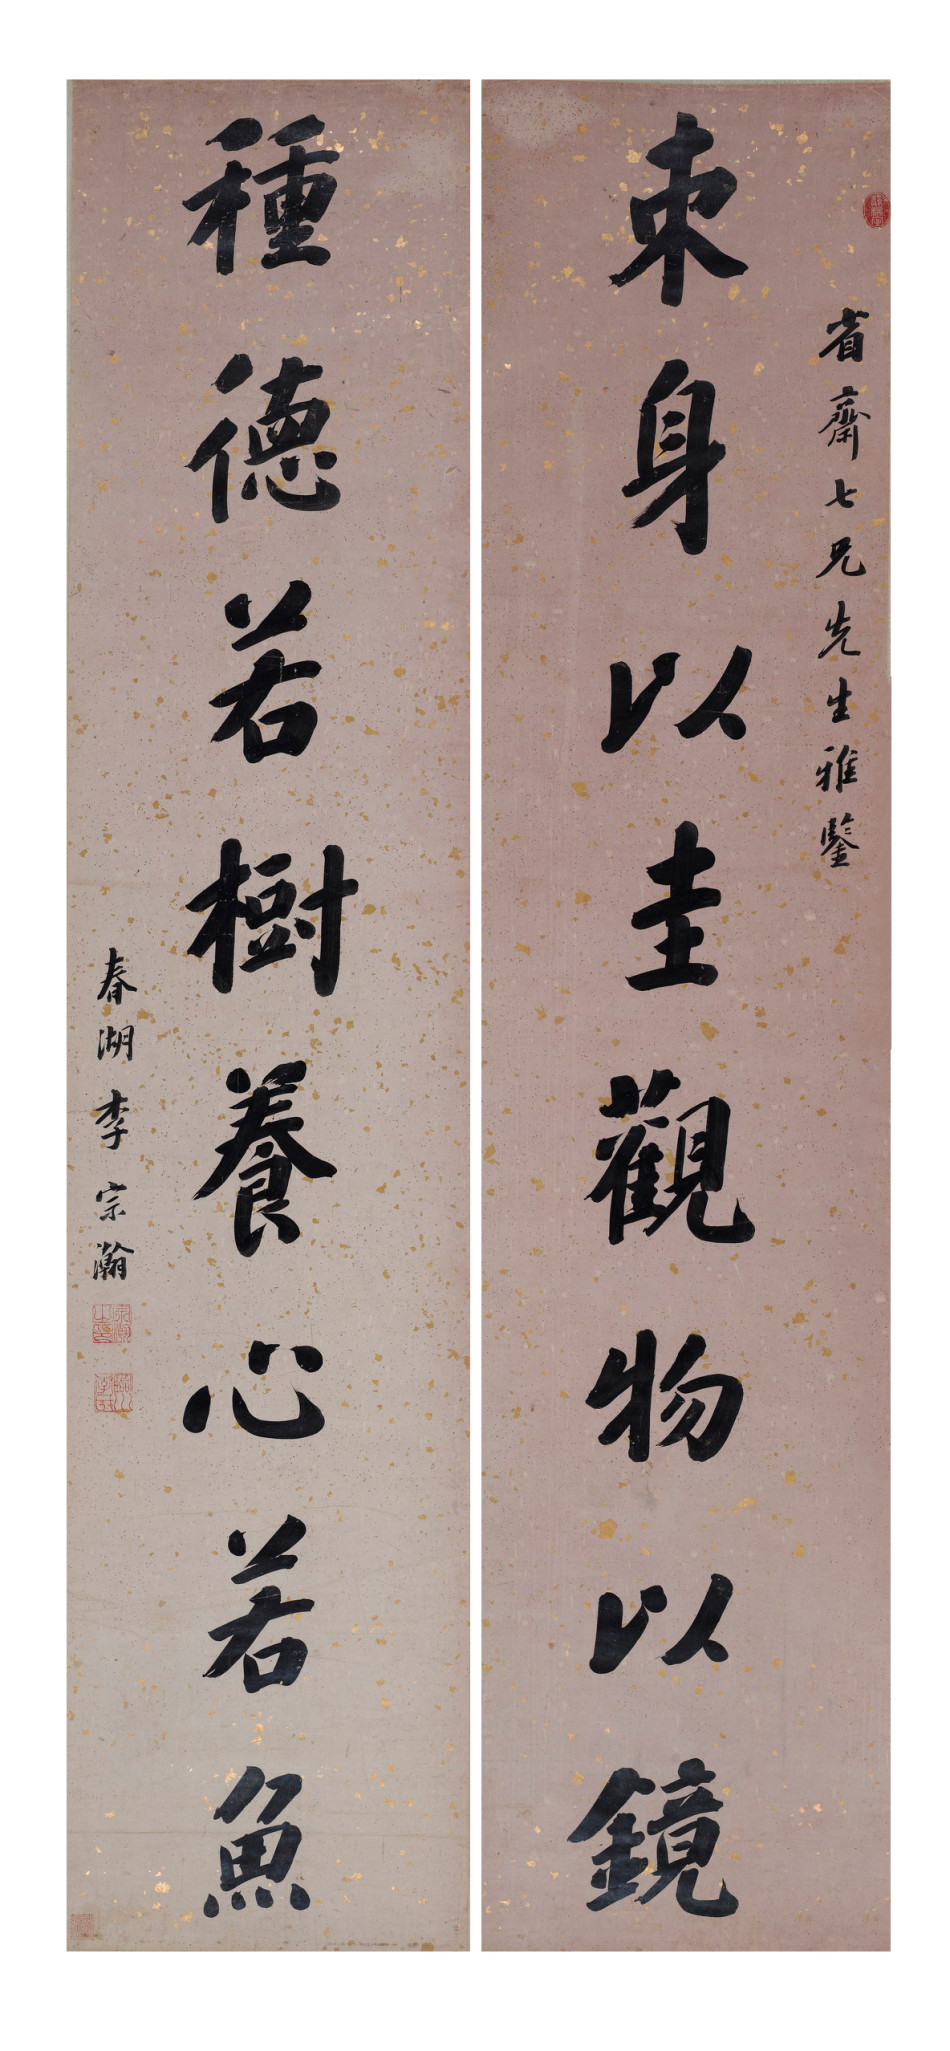 省齋七兄先生雅鑒
束身以圭觀物以鏡
種德若樹養心若魚
春湖李宗瀚